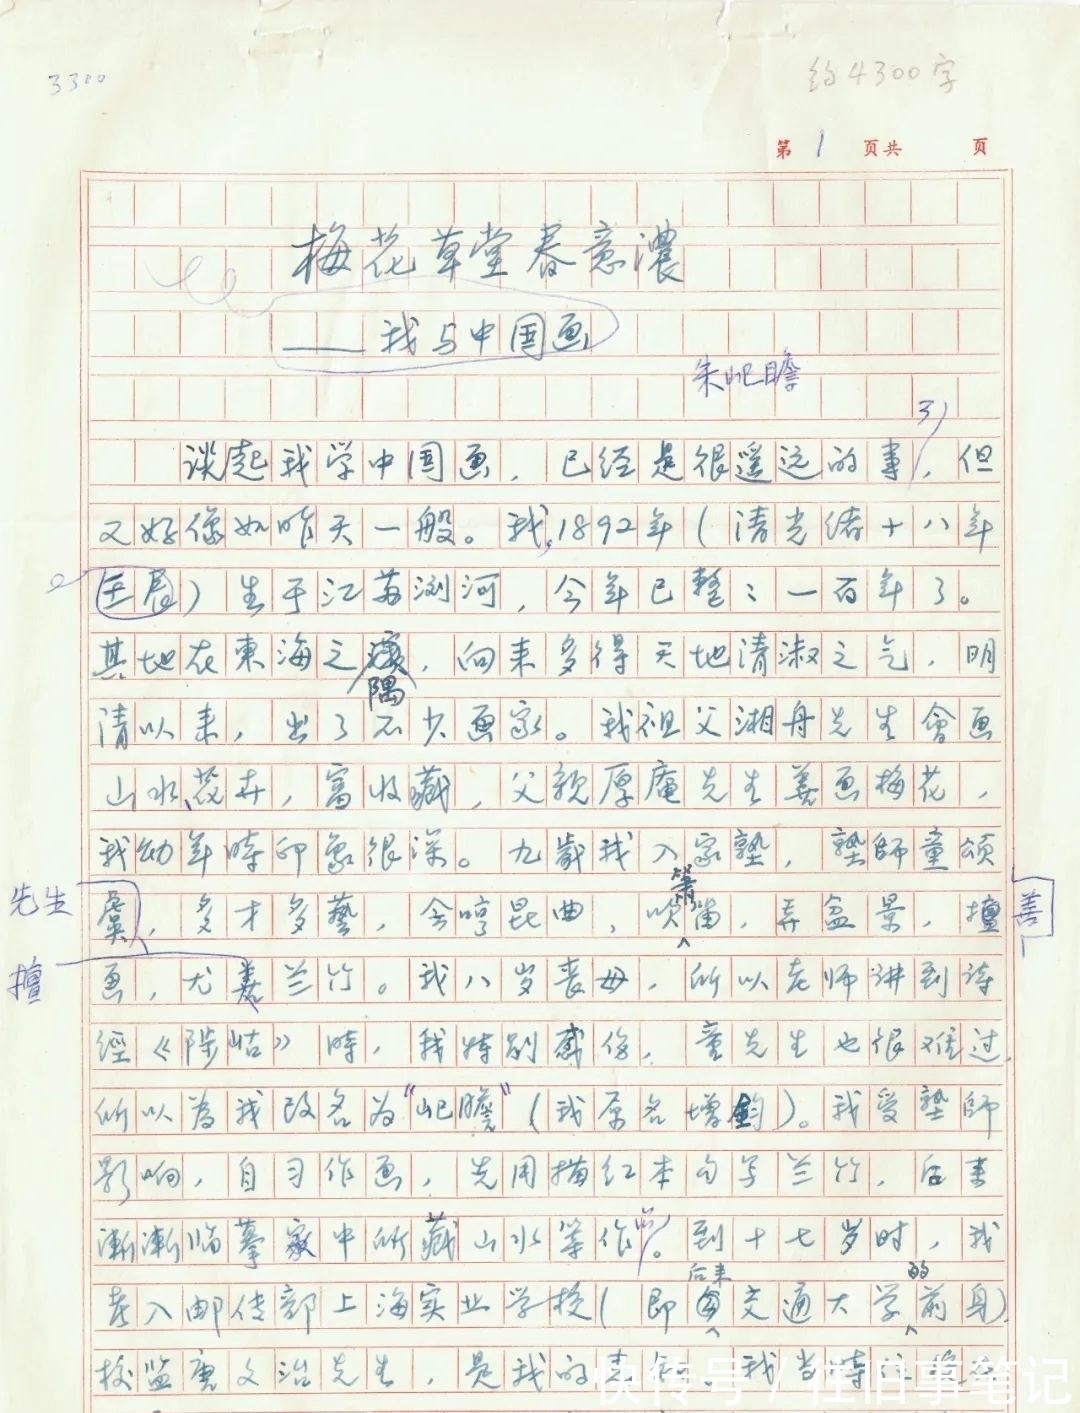 3300
约4300字
第1页共 页
梅花草堂春意濃
——我与中国画
朱屺瞻
谈起我学中国画，已经是很遥远的事，但
又好像如昨天一般。我1892年（清光绪十八年
壬辰）生于江苏浏河，今年已整整一百年了。
其地在東海之
隅
，向来多得天地清淑之气，明
清以来，出了不少画家。我祖父湘舟先生會画
山水、花卉，富收藏，父親厚庵先生善画梅花，
我幼年時印象很深。九歲我入家塾，塾師童頌
先生
虞，多才多藝，会哼昆曲，吹
箫
笛，弄盆景，擅
善
擅
画，尤善兰竹。我八岁丧母，所以老师讲到诗
經《陟岵》時，我特别感伤，童先生也很难过，
所以為我改名為“屺瞻”（我原名增鈞）。我受塾師
影响，自习作画，先用描红本勾写兰竹，后来
漸漸临摹家中所藏山水等作。到十七岁时，我
考入邮传部上海实业学校（即
后来
交通大学
的
前身）
校监唐文治先生，是我的
我当時
快传号 / 往旧事笔记